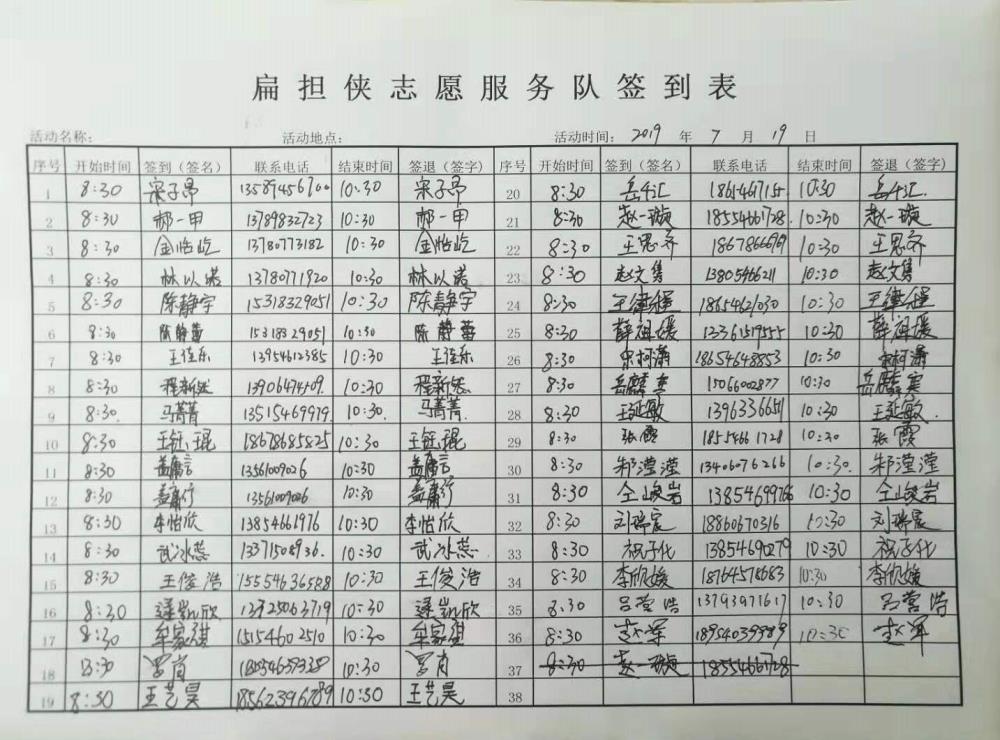 扁担侠志愿服务队签到表
活动名称： 活动地点： 活动时间：2019 年 7 月 19 日
序号 开始时间 签到（签名） 联系电话 结束时间 签退（签字） 序号 开始时间 签到（签名） 联系电话 结束时间 签退（签字）
1 8:30 宋子昂 10:30 宋子昂 20 8:30 10:30
2 8:30 郝一甲 13789832723 10:30 郝一甲 21 8:30 赵一璇 18554661728 10:30 赵一璇
3 8:30 金怡屹 13780773182 10:30 金怡屹 22 8:30 王思齐 10:30 王思齐
4 8:30 林以诺 13780771920 10:30 林以诺 23 8:30 赵文隽 13805466211 10:30 赵文隽
5 8:30 陈静宇 15318329051 10:30 陈静宇 24 8:30 王律程 18654621030 10:30 王律程
6 8:30 陈静蕾 15318329051 10:30 陈静蕾 25 8:30 薛祖媛 13361519555 10:30 薛祖媛
7 8:30 王佳乐 13954612385 10:30 王佳乐 26 8:30 宋柯潇 18654648853 10:30 宋柯潇
8 8:30 程新然 13906474109. 10:30 程新然 27 8:30 15066002877 10:30
9 8:30 马菁菁 13515469979 10:30. 马菁菁. 28 8:30 王延敏 10:30 王延敏.
10 8:30 王钰琨 18678685825 10:30 王钰琨 29 8:30 张霞 18554661728 10:30 张霞
11 8:30 盖庸言 13561009026 10:30 盖庸言 30 8:30 郝滢滢 13406076266 10:30. 郝滢滢
12 8:30 盖庸行 13561009026 10:30 盖庸行 31 8:30 仝峻岩 13854699766 10:30 仝峻岩
13 8:30 李怡欣 13854661976 10:30 李怡欣 32 8:30 刘瑞宸 18860670316 10:30 刘瑞宸
14 8:30 武冰蕊 10:30 武冰蕊 33 8:30 祝子化 13854690279 10:30 祝子化
15 8:30 王俊浩 10:30 王俊浩 34 8:30 李欣媛 18764578683 10:30 李欣媛
16 8:30 逯凯欣 10:30 逯凯欣 35 8:30 吕营浩 13793971617 10:30 吕营浩
17 8:30 牟家祺 15154602510 10:30 牟家祺 36 8:30 赵军 18954039989 10:30 赵军
18 8:30 罗肖 10:30 罗肖 37 8:30 赵一璇 18554661728
19 8:30 王艺昊 18562396789 10:30 王艺昊 38